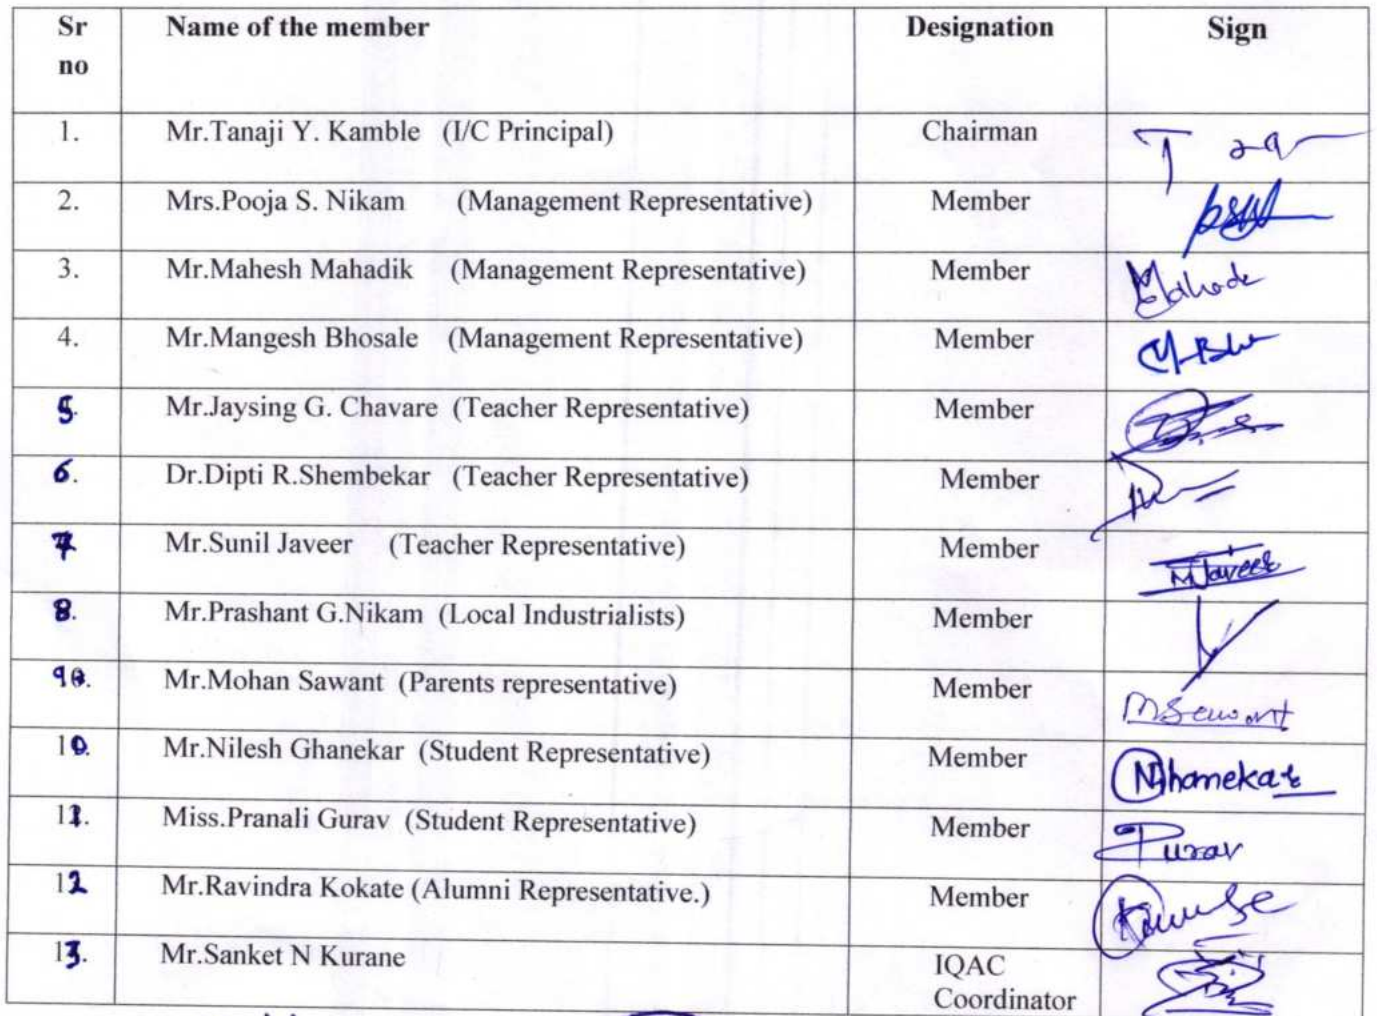 Sr no Name of the member Designation Sign
1. Mr.Tanaji Y. Kamble (I/C Principal) Chairman
2. Mrs.Pooja S. Nikam (Management Representative) Member
3. Mr.Mahesh Mahadik (Management Representative) Member
4. Mr.Mangesh Bhosale (Management Representative) Member
5 Mr.Jaysing G. Chavare (Teacher Representative) Member
6. Dr.Dipti R.Shembekar (Teacher Representative) Member
7 Mr.Sunil Javeer (Teacher Representative) Member
8. Mr.Prashant G.Nikam (Local Industrialists) Member
9. Mr.Mohan Sawant (Parents representative) Member
10. Mr.Nilesh Ghanekar (Student Representative) Member
11. Miss.Pranali Gurav (Student Representative) Member
12 Mr.Ravindra Kokate (Alumni Representative.) Member
13. Mr.Sanket N Kurane IQAC Coordinator